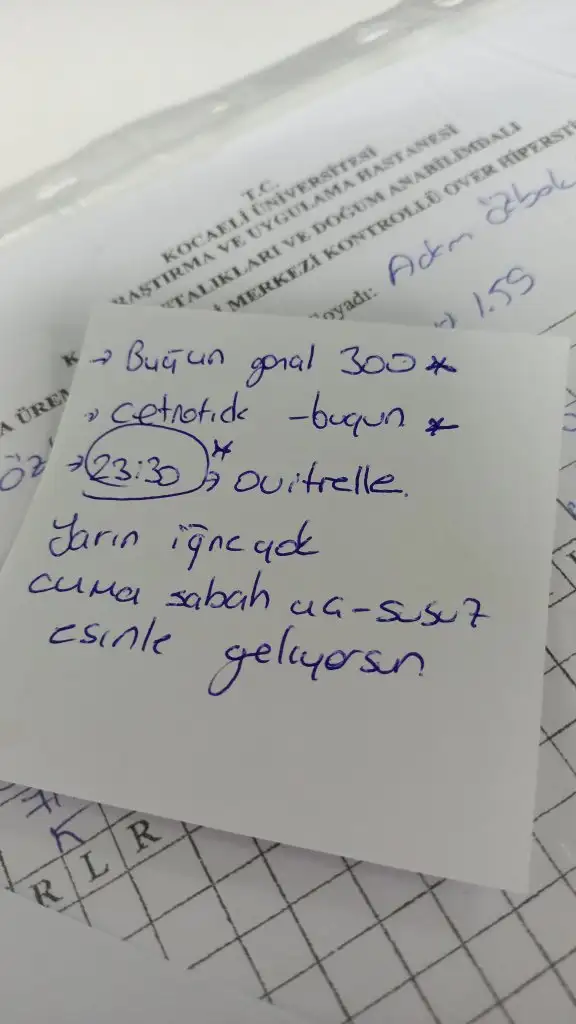 T.C.
KOCAELİ ÜNİVERSİTESİ
RAŞTIRMA VE UYGULAMA HASTANESİ
TALIKLARI VE DOĞUM ANABİLİMDALI
MERKEZİ KONTROLLÜ OVER HİPERSTİ
oyadı: Adem
1.55
A ÜREM
ÖZ
→ Bugün gonal 300 *
→ cetrotide -bugun *
→ 23:30 * → ovitrelle.
Yarın iğne yok
cuma sabah aç-susuz
esinle geliyorsun
R L R